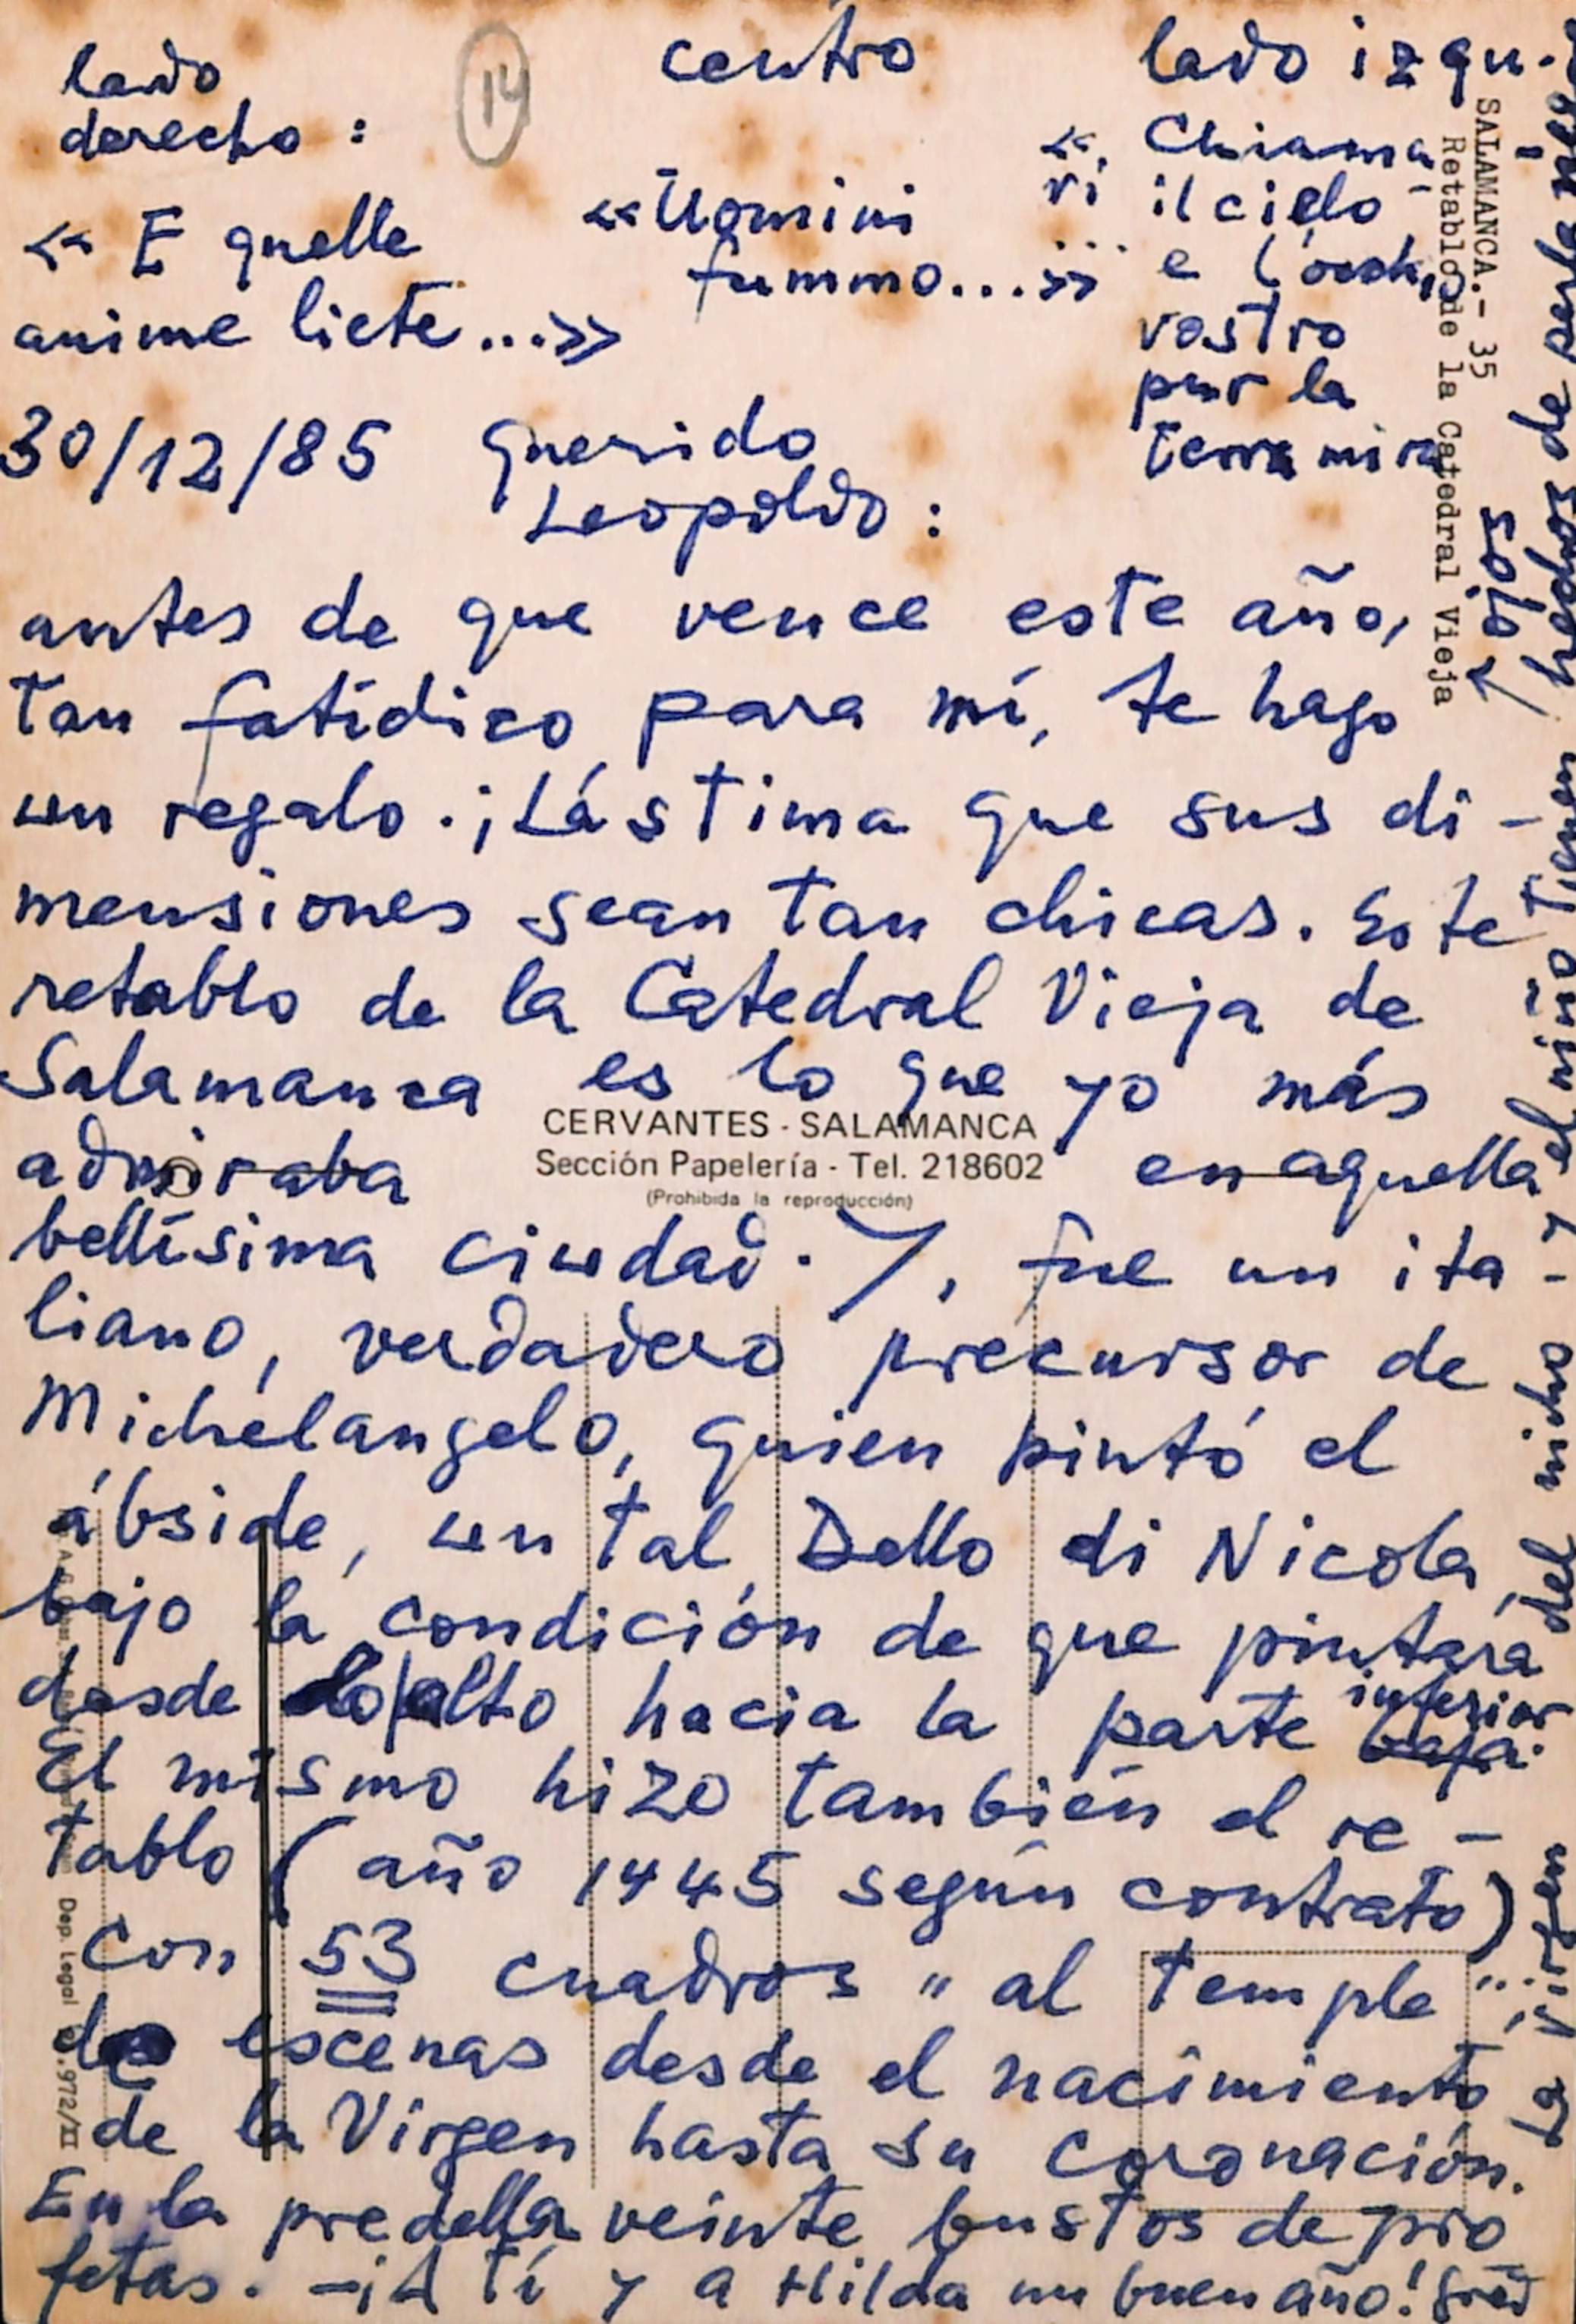 lado
derecho :
« E quelle
anime liete...»
14
centro
« Uomini
fummo...»
lado izqu.
« Chiama-
vi il cielo
... e l'occhio
vostro
pur la
terra mira
SALAMANCA.- 35
Retablo de la Catedral Vieja
30/12/85 Querido
Leopoldo :
antes de que vence este año,
tan fatídico para mí, te hago
un regalo. ¡Lástima que sus di-
mensiones sean tan chicas. Este
retablo de la Catedral Vieja de
Salamanca es lo que yo más
admiraba en aquella
CERVANTES - SALAMANCA
Sección Papelería - Tel. 218602
(Prohibida la reproducción)
bellísima ciudad. Y, fue un ita-
liano, verdadero precursor de
Michelangelo, quien pintó el
ábside, un tal Dello di Nicola
bajo la condición de que pintara
desde lo alto hacia la parte inferior
baja.
El mismo hizo también el re-
tablo (año 1445 según contrato)
con 53 cuadros "al temple"
de escenas desde el nacimiento
de la Virgen hasta su coronación.
En la predella veinte bustos de pro
fetas. - ¡A tí y a Hilda un buen año! Fred
Dep. Legal B. 972/XI
La virgen del nicho y el niño tienen
ojos
hechos de perla